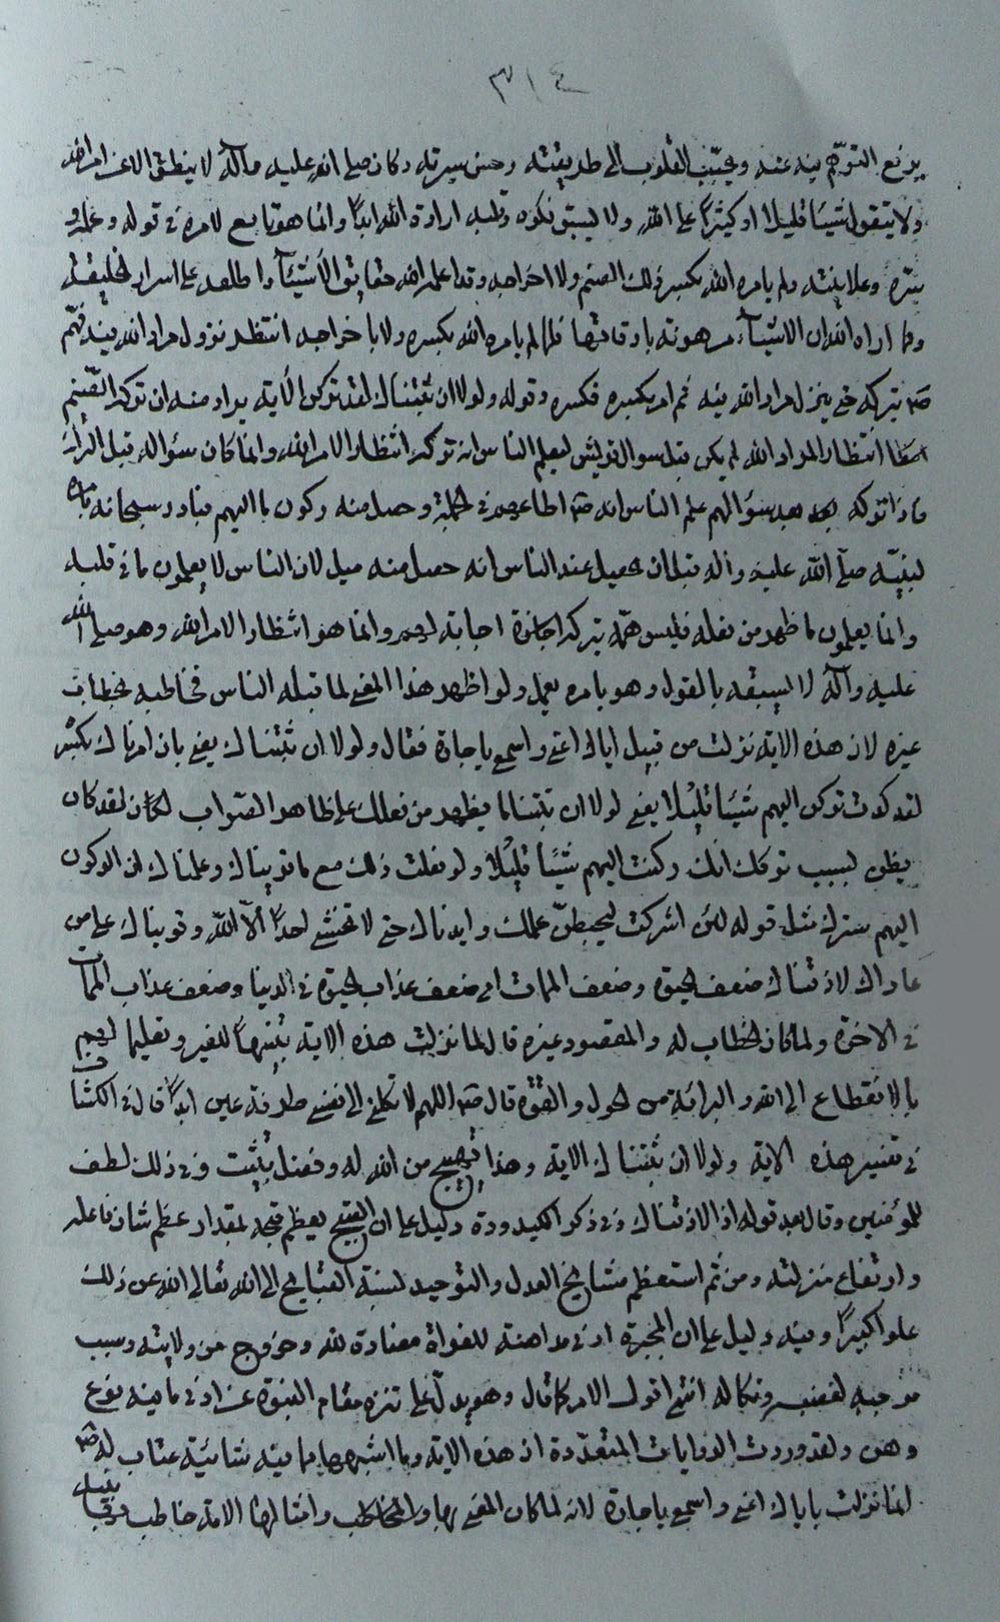 ٣١٤
يرفع التوهم فيه عنه ويحبب القلوب الى طريقته وحسن سيرته وكان صلى الله عليه وآله لا ينطق الا عن امر الله
ولا يتقول شيئا قليلا او كثيرا على الله ولا يسبق تكوه وقلبه ارادة الله ابدا وانما هو تابع لامره في قوله وعمله و
سره وعلانيته ولم يامره الله بكسر ذلك الصنم ولا اخراجه وقد اعلمه الله حقايق الاشياء واطلعه على اسرار الخليقة
ومما اراه الله ان الاشياء مرهونة باوقاتها فلما لم يامره الله بكسره ولا باخراجه انتظر نزول مراد الله فيه فهم
ص بتركه حتى ينزل مراد الله فيه ثم امر بكسره فكسره وقوله ولولا ان ثبتناك لقد تركن الآية يراد منه ان تركه الصنم
انتظار المراد الله لم يكن قبل سوال قريش ليعلم الناس انه تركه انتظار الامر الله وانما كان سؤاله قبل الترك
فاذا تركه بعد سؤالهم علم الناس انه ص اطاعهم في الجملة وحصل منه ركون ما اليهم فبادر سبحانه بامره
لنبيه صلى الله عليه وآله قبل ان يحصل عند الناس انه حصل منه ميل لان الناس لا يعلمون ما في قلبه
وانما يعلمون ما ظهر من فعله فليس همه بتركه اجابة لهم وانما هو انتظار الامر الله وهو صلى الله
عليه وآله لا يسبقه بالقول وهو بامره يعمل ولو اظهر هذا المعنى لما قبله الناس فخاطبه بخطاب
غيره لان هذه الاية نزلت من قبيل اياك اعني واسمعي يا جارة فقال ولولا ان ثبتناك يعني بان امرناك بكسر
لقد كدت تركن اليهم شيئا قليلا يعني لولا ان ثبتنا ما يظهر من فعلك على ظاهر الصواب لكان لقد كان
يظن بسبب تركك انك ركنت اليهم شيئا قليلا ولو فعلت ذلك مع ما قويناك وعلمناك ان الركون
اليهم شرك مثل قوله لئن اشركت ليحبطن عملك وايدناك حتى لا تخشى احدا الا الله وقويناك على من
عاداك لاذقناك ضعف الحيوة وضعف الممات اي ضعف عذاب الحيوة في الدنيا وضعف عذاب الممات
في الاخرة ولما كان الخطاب له والمقصود غيره قال لما نزلت هذه الاية تنبيها للغير وتعليما لهم
بالانقطاع الى الله والبرائة من الحول والقوة قال ص اللهم لا تكلني الى نفسي طرفة عين ابدا قال في الكشاف
في تفسير هذه الاية ولولا ان ثبتناك الاية وهذا تهييج من الله له وفضل تثبيت وفي ذلك لطف
للمؤمنين وقال بعد قوله اذا لاذقناك وفي ذكر الكيدودة دليل على ان القبيح يعظم قبحه بمقدار عظم شان فاعله
وارتفاع منزلته ومن ثم استعظم مشايخ العدل والتوحيد نسبة القبايح الى الله تعالى الله عن ذلك
علوا كبيرا وفيه دليل على ان المجبرة ادنى مداهنة للغواة مضادة لله وخروج من ولايته وسبب
موجب لغضبه ونكاله انتهى اقول الامر كما قال وهو يدل على تنزه مقام النبوة عن ادنى ما فيه نوع
وهن ولقد وردت الروايات المتعددة ان هذه الاية وما اشبهها مما فيه شائبة عتاب له ص
انما نزلت باياك اعني واسمعي يا جارة لانه لما كان المعنى بها والمخاطب وامثالها الامة خاطب